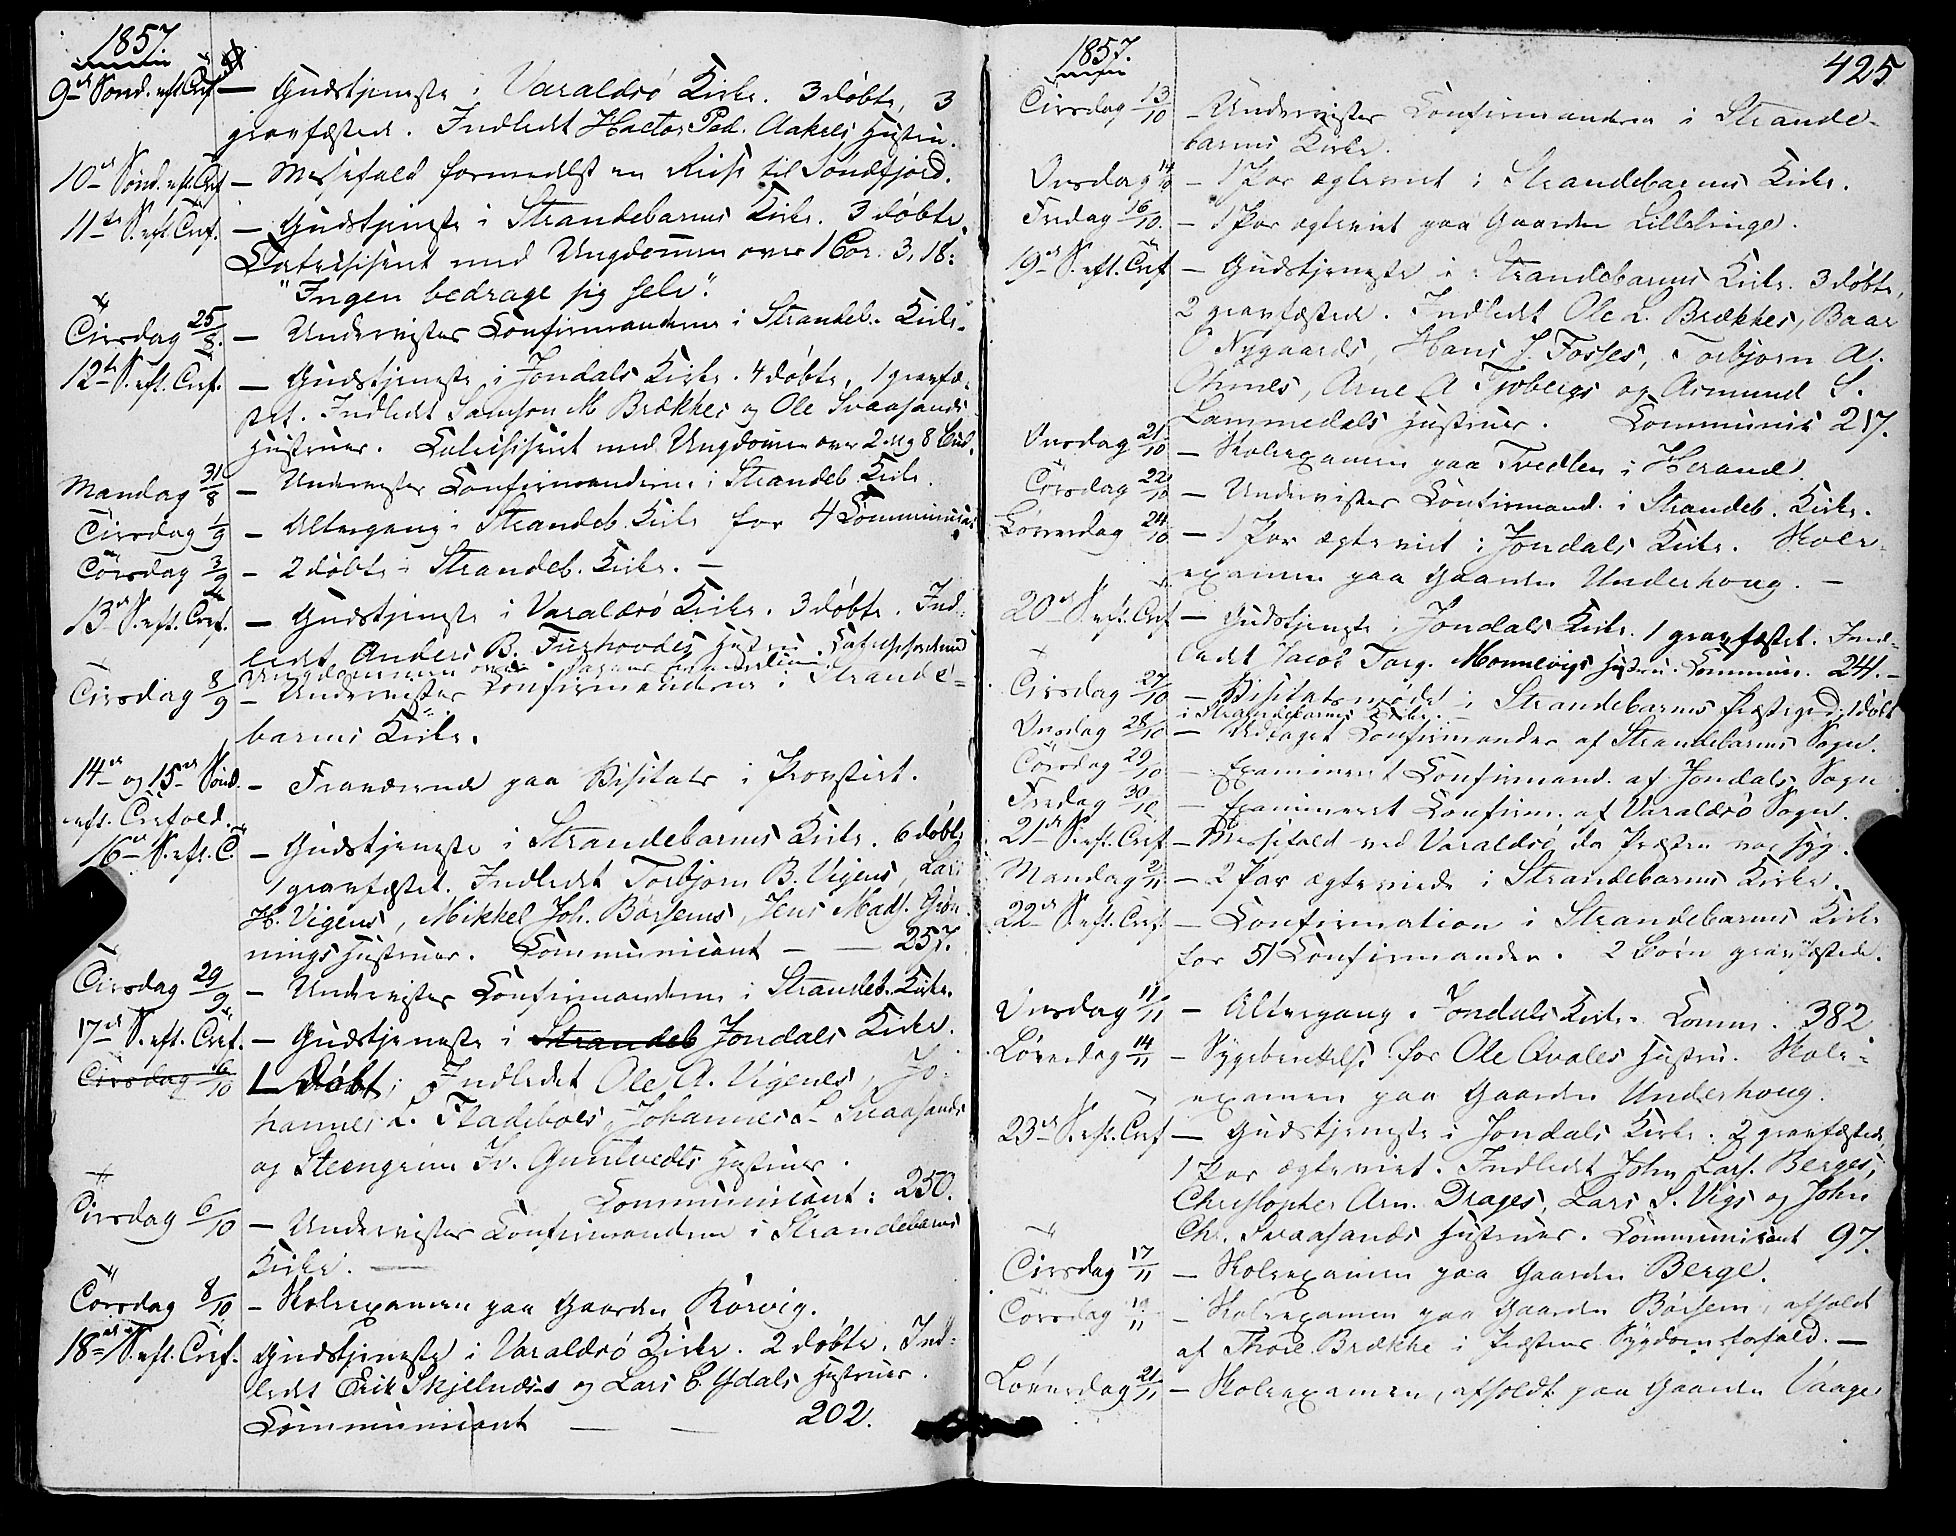 1857.
9de Sönd. eft. Tref. — Gudstjeneste i Varaldsö Kirke. 3 döbte, 3
gravfæstede. Indledt Hactor Ped. Aakres Hustru.
10de Sönd. eft. Tref. — Messefald formedelst en Reise til Söndfjord.
11te S. eft. Tref. — Gudstjeneste i Strandebarms Kirke. 3 döbte.
Catechiseret med Ungdommen over 1 Cor. 3, 18:
"Ingen bedrage sig selv".
Tirsdag 25/8. — Undervistes Confirmanderne i Strandeb. Kirke.
12te S. eft. Tref. — Gudstjeneste i Jondals Kirke. 4 döbte, 1 gravfæ-
stet. Indledt Samson M Brækkes og Ole Svaasands
Hustruer. Catechiseret med Ungdommen over 2 og 8 Bud.
Mandag 31/8 — Undervistes Confirmanderne i Strandeb. Kirke.
Tirsdag 1/9 — Altergang i Strandeb. Kirke for 4 Communic.
Torsdag 3/9 — 2 döbte i Strandeb. Kirke. —
13de S. eft. Tref. — Gudstjeneste i Varaldsö Kirke. 3 döbte. Ind-
ledt Anders B. Hustru. Catechiserede
Ungdommen over
Tirsdag 8/9 — Undervistes Confirmanderne i Strande-
barms Kirke.
14de og 15de Sönd. — Fraværende paa Visitats i Provstiet.
eft. Trefold.
16de S. eft. T. — Gudstjeneste i Strandebarms Kirke. 6 döbte
1 gravfæstet. Indledt Torbjörn B. Vigens, Lars
H. Vigens, Mikkel Joh. Börsems, Jens Mads. Grön-
nings Hustruer. Communicant — — 257.
Tirsdag 29/9 — Undervistes Confirmanderne i Strandeb. Kirke.
17de S. eft. Tref. — Gudstjeneste i Strandeb Jondals Kirke.
Tirsdag 6/10 1 Döbt; Indledt Ole A. Vigenes, Jo-
hannes L. Fladeböes, Johannes L. Svaasands
og Steengrim Iv. Guntvedts Hustruer.
Communicant: 250.
Tirsdag 6/10 — Undervistes Confirmanderne i Strandebarms
Kirke. —
Torsdag 8/10 — Skoleexamen paa Gaarden Rörvig.
18de S. eft. Tref. Gudstjeneste i Varaldsö Kirke. 2 döbte. Ind-
ledt Erik Skjelnæs og Lars E. Ydals Hustruer.
Communicant — — 202.
1857.
425
Tirsdag 13/10 — Undervistes Confirmanderne i Strande-
barms Kirke.
Onsdag 14/10 — 1 Par ægteviet i Strandebarms Kirke.
Fredag 16/10. — 1 Par ægteviet paa Gaarden Lillelinge.
19de S. eft. Tref. — Gudstjeneste i Strandebarms Kirke. 3 döbte,
2 gravfæstede. Indledt Ole L. Brækkes, Baar
O Nygaards, Hans J. Fosses, Torbjörn A.
Omnes, Arne A Tjobergs og Asmund S.
Lammedals Hustruer. Communic 217.
Onsdag 21/10 — Skoleexamen paa Tvedten i Herand.
Torsdag 22/10 — Undervistes Confirmand. i Strandeb. Kirke.
Löverdag 24/10 — 1 Par ægteviet i Jondals Kirke. Skole-
examen paa Gaarden Underhoug. —
20de S. eft. Tref — Gudstjeneste i Jondals Kirke. 1 gravfæstet. Ind-
ledt Jacob Torg. Monnevigs Hustru. Commun. 244. —
Tirsdag 27/10 — Visitatsmödet i Strandebarms Præstegrd; 1 döbt
i Strandebarms Kirke. —
Onsdag 28/10 — Udtaget Confirmander af Strandebarms Sogn.
Torsdag 29/10 — Examineret Confirmand. af Jondals Sogn
Fredag 30/10 — Examineret Confirm. af Varaldsö Sogn.
21de S. eft. Tref. — Messefald ved Varaldsö, da Præsten var syg.
Mandag 2/11 — 2 Par ægteviede i Strandebarms Kirke.
22de S. eft. Tref. — Confirmation i Strandebarms Kirke
for 51 Confirmander. 2 Börn gravfæstede.
Onsdag 11/11 — Altergang i Jondals Kirke. Comm. 382
Löverdag 14/11 — Sygeberettelse for Ole Qvales Hustru. Skole-
examen paa Gaarden Underhoug.
23de S. eft. Tref — Gudstjeneste i Jondals Kirke. 2 gravfæstede,
1 Par ægteviet. Indledt John Lars. Berges,
Christopher Arn. Drages, Lars S. Vigs og John
Chr. Svaasands Hustruer. Communicant 97.
Tirsdag 17/11 — Skoleexamen paa Gaarden Berge.
Torsdag 19/11 — Skoleexamen paa Gaarden Börsem, afholdt
af Thore Brække i Præstens Sygdomsforfald. —
Löverdag 21/11 — Skoleexamen, afholdt paa Gaarden Vaage